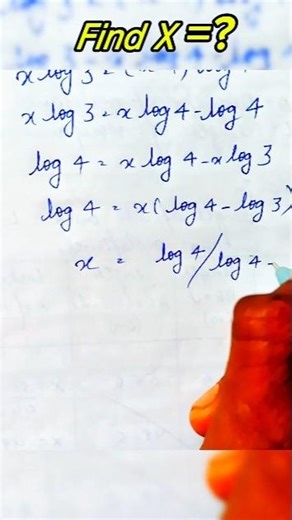 Find X =?
x log 3 = x log 4 - log 4
log 4 = x log 4 - x log 3
log 4 = x ( log 4 - log 3 )
x = log 4 / log 4 -